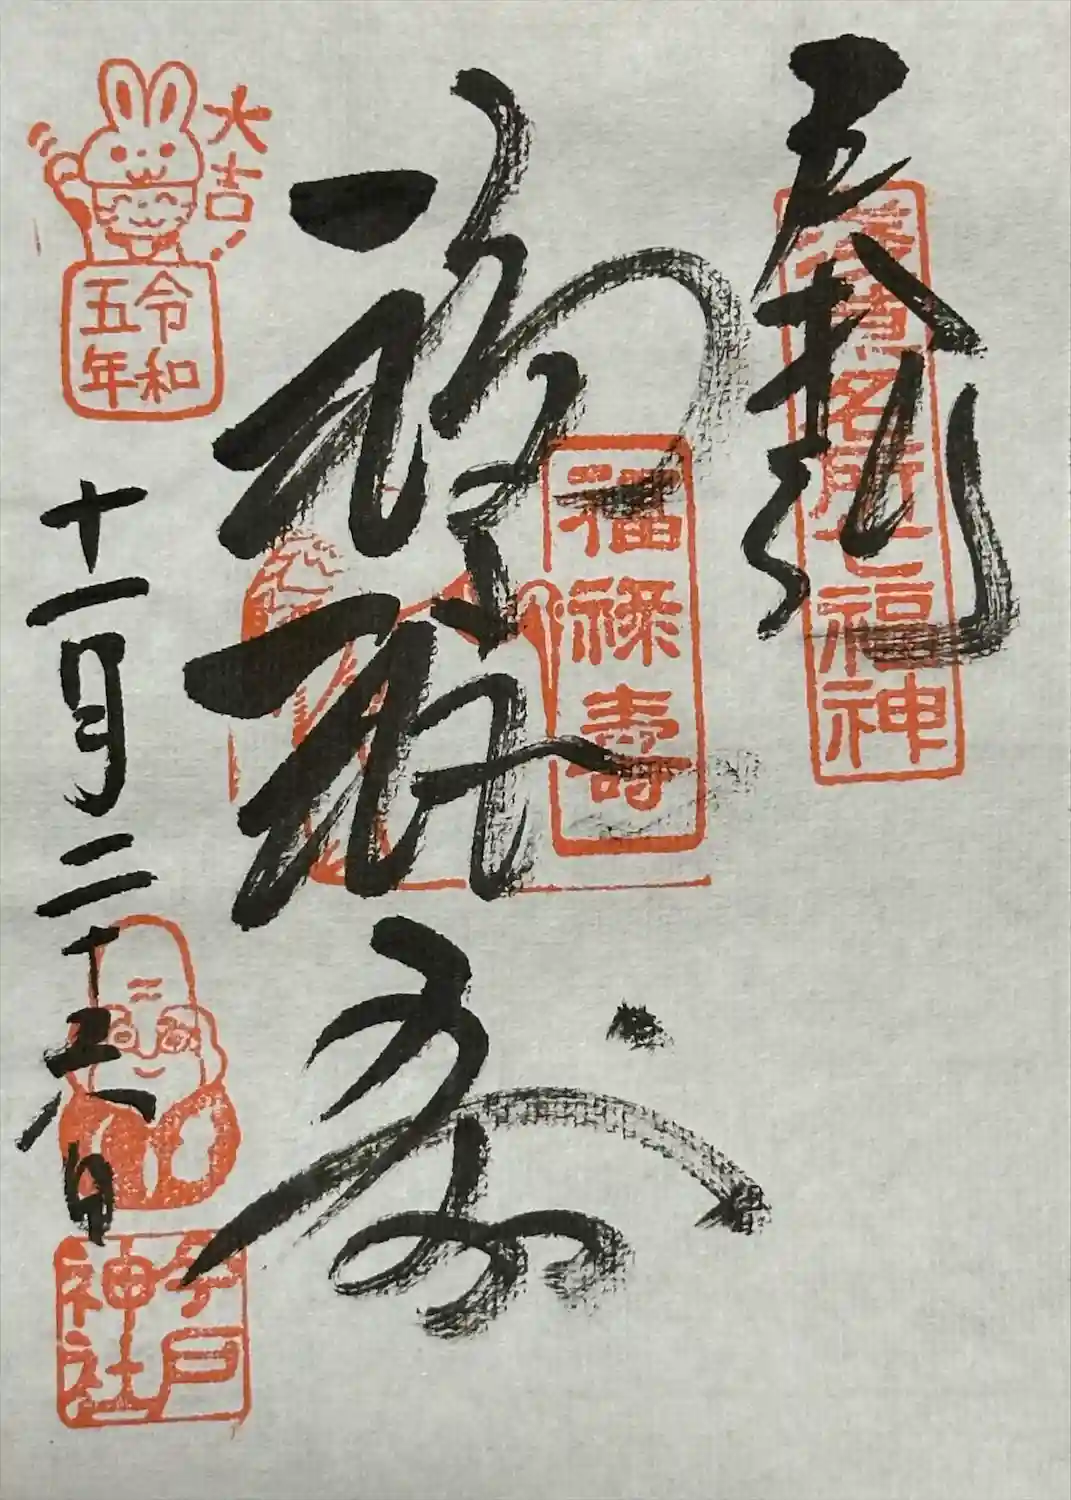 奉拝
浅草名所七福神
福禄寿
福禄壽
大吉!
令和
五年
十一月二十六日
今戸
神社